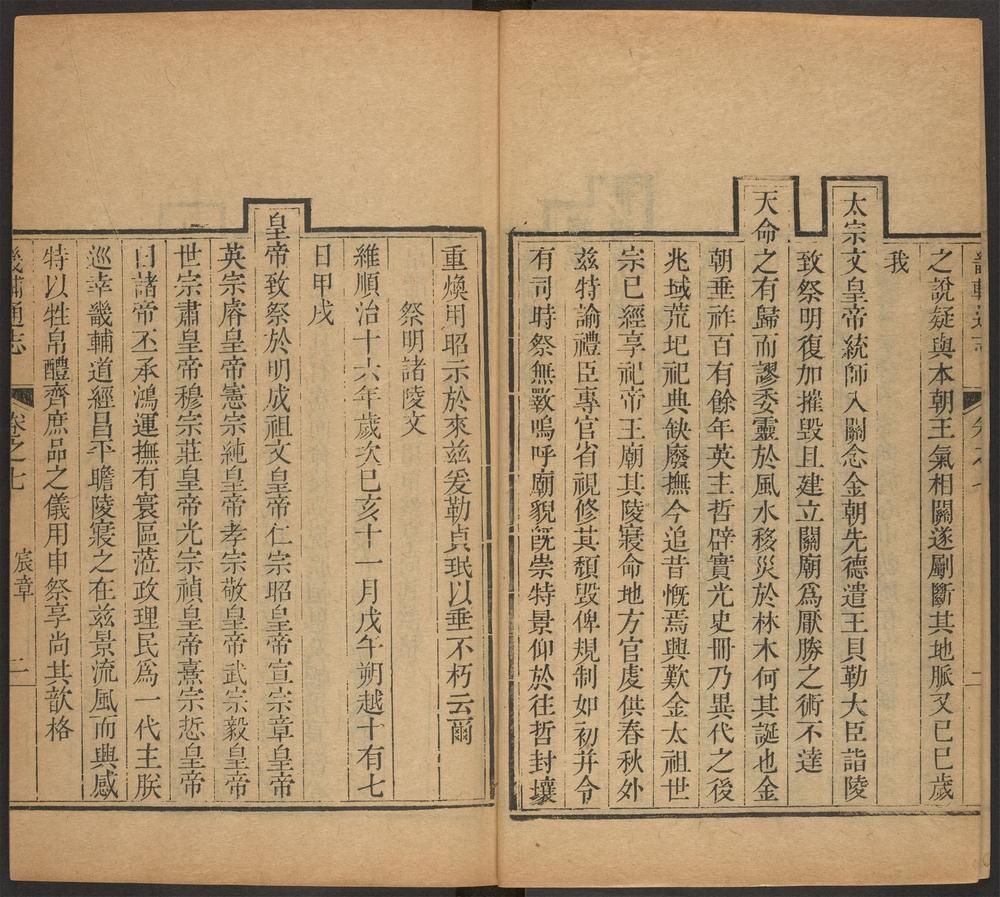 之說疑與本朝王氣相關遂劚斷其地脈又己巳歲
我
太宗文皇帝統師入關念金朝先德遣王貝勒大臣詣陵
致祭明復加摧毀且建立關廟爲厭勝之術不達
天命之有歸而謬委靈於風水移災於林木何其誕也金
朝垂祚百有餘年英主哲辟實光史冊乃異代之後
兆域荒圯祀典缺廢撫今追昔慨焉興歎金太祖世
宗已經享祀帝王廟其陵寢命地方官虔供春秋外
兹特諭禮臣專官省視修其頹毀俾規制如初并令
有司時祭無斁嗚呼廟貌旣崇特景仰於往哲封壤
重煥用昭示於來兹爰勒貞珉以垂不朽云爾
祭明諸陵文
維順治十六年歲次己亥十一月戊午朔越十有七
日甲戌
皇帝致祭於明成祖文皇帝仁宗昭皇帝宣宗章皇帝
英宗睿皇帝憲宗純皇帝孝宗敬皇帝武宗毅皇帝
世宗肅皇帝穆宗莊皇帝光宗禎皇帝熹宗悊皇帝
曰諸帝丕承鴻運撫有寰區蒞政理民爲一代主朕
巡幸畿輔道經昌平瞻陵寢之在兹景流風而興感
特以牲帛醴齊庶品之儀用申祭享尚其歆格
畿輔通志 卷之七 宸章 二